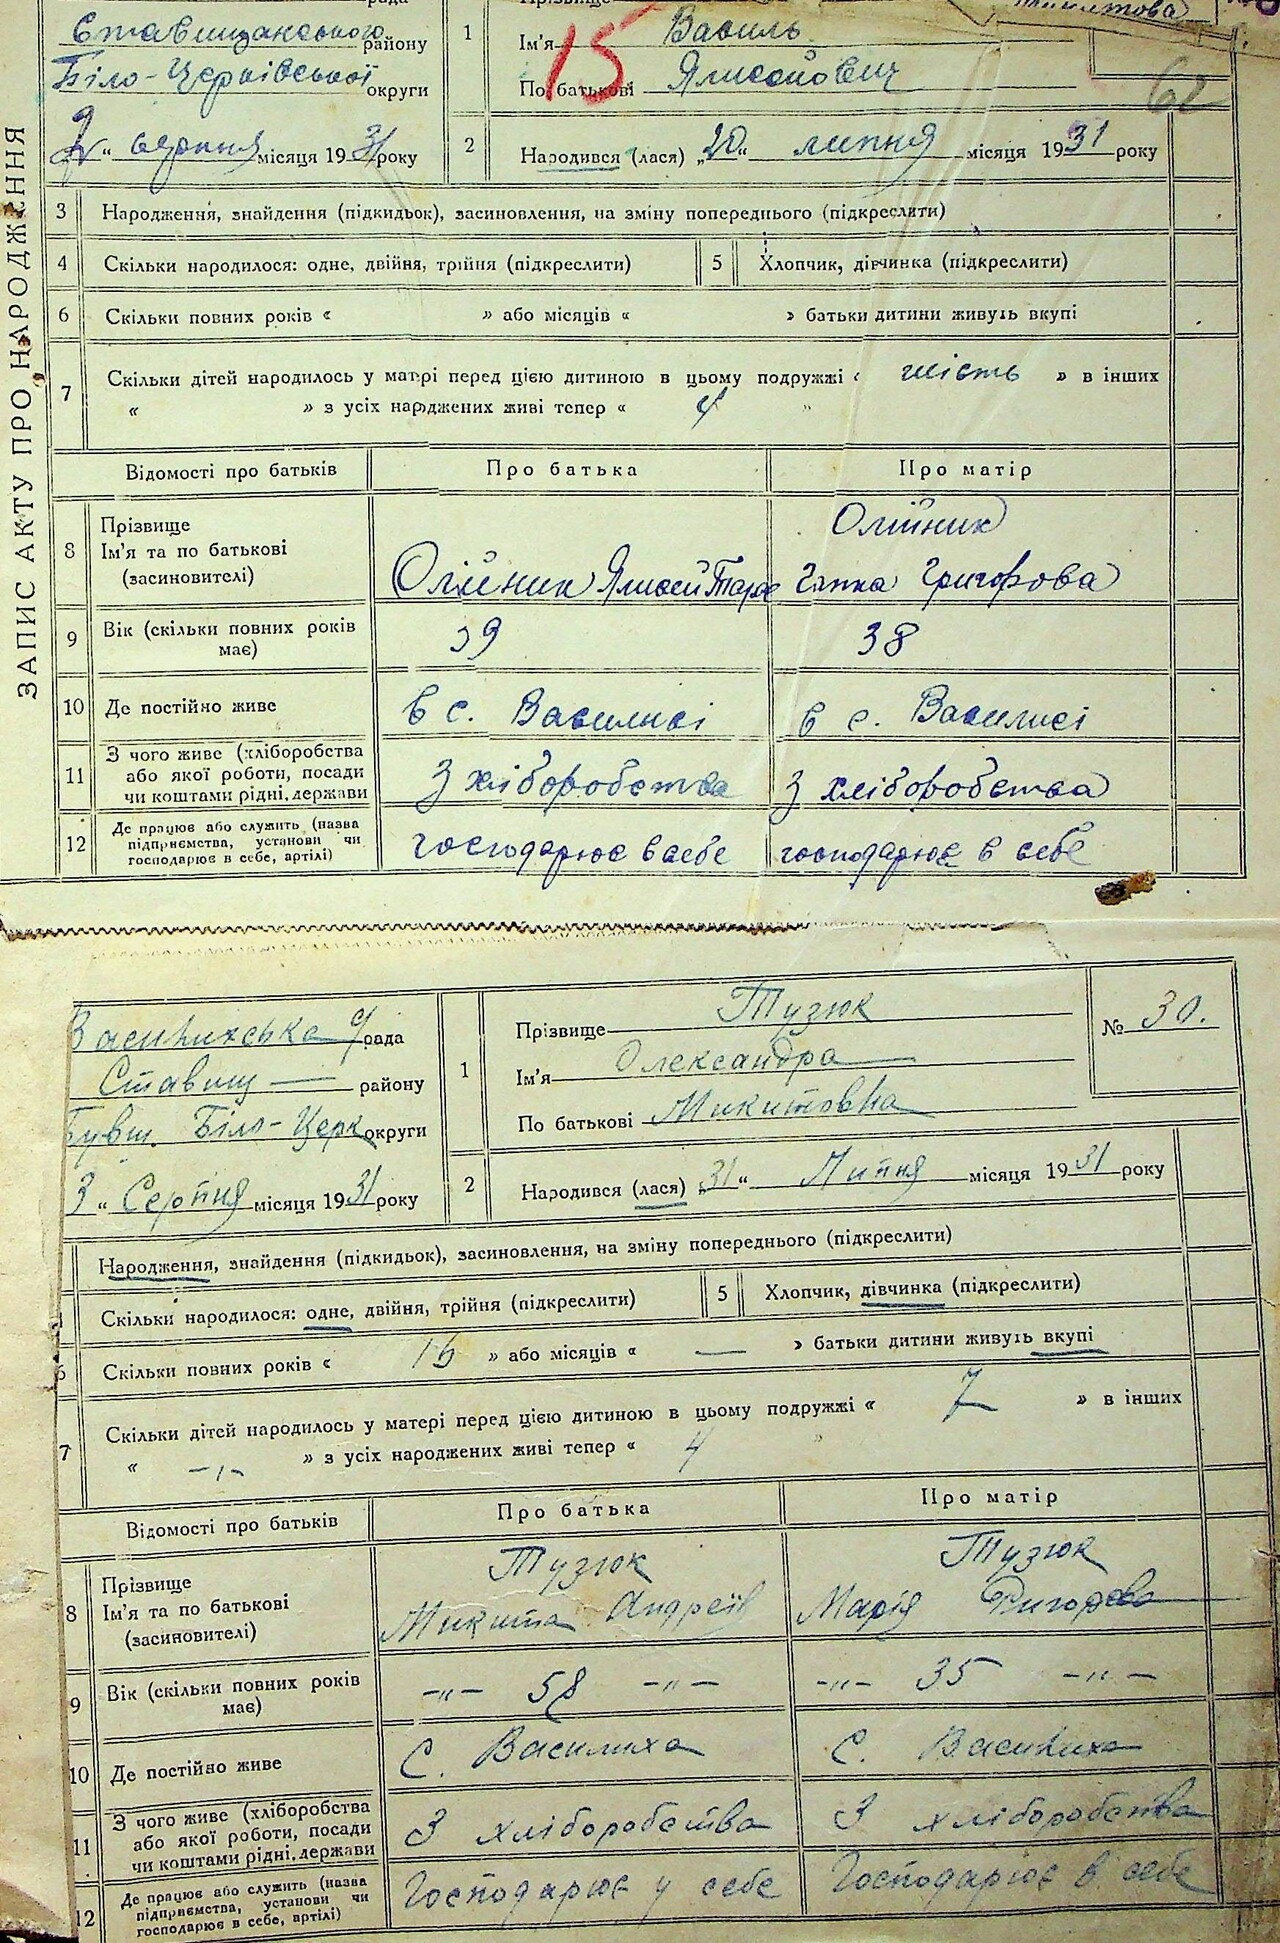 ЗАПИС АКТУ ПРО НАРОДЖЕННЯ
рада
Ставищанського району
Біло-Церківської округи
2 " серпня місяця 1931 року
1
Прізвище
Ім'я Василь
По батькові
15
62
2 Народився (лася) „20" липня місяця 1931 року
3 Народження, знайдення (підкидьок), засиновлення, на зміну попереднього (підкреслити)
4 Скільки народилося: одне, двійня, трійня (підкреслити) 5 Хлопчик, дівчинка (підкреслити)
6 Скільки повних років « » або місяців « » батьки дитини живуть вкупі
7 Скільки дітей народилось у матері перед цією дитиною в цьому подружжі « шість » в інших
« » з усіх народжених живі тепер « 4 "
Відомості про батьків Про батька Про матір
8 Прізвище
Ім'я та по батькові
(засиновителі)
Олійник
Олійник Ялисей Григорова
9 Вік (скільки повних років має) 39 38
10 Де постійно живе в с. Василисі в с. Василисі
11 З чого живе (хліборобства або якої роботи, посади чи коштами рідні, держави З хліборобства З хліборобства
12 Де працює або служить (назва підприємства, установи чи господарює в себе, артілі) господарює в себе господарює в себе
Василихська с/рада
Ставищ — району
Бувш. Біло-Церк округи
3 " Серпня місяця 1931 року
1
Прізвище Тузюк
Ім'я Олександра
По батькові Микитовна
№ 30.
2 Народився (лася) „31" Липня місяця 1931 року
Народження, знайдення (підкидьок), засиновлення, на зміну попереднього (підкреслити)
Скільки народилося: одне, двійня, трійня (підкреслити) 5 Хлопчик, дівчинка (підкреслити)
6 Скільки повних років « 16 » або місяців « — » батьки дитини живуть вкупі
7 Скільки дітей народилось у матері перед цією дитиною в цьому подружжі « 7 » в інших
« -ı- » з усіх народжених живі тепер « 4 "
Відомості про батьків Про батька Про матір
8 Прізвище
Ім'я та по батькові
(засиновителі)
Тузюк Тузюк
Микита Андреїв Марія
9 Вік (скільки повних років має) -"- 58 -"- -"- 35 -"-
10 Де постійно живе С. Василиха С. Василиха
11 З чого живе (хліборобства або якої роботи, посади чи коштами рідні, держави З хліборобства З хліборобства
12 Де працює або служить (назва підприємства, установи чи господарює в себе, артілі) Господарює у себе Господарює в себе